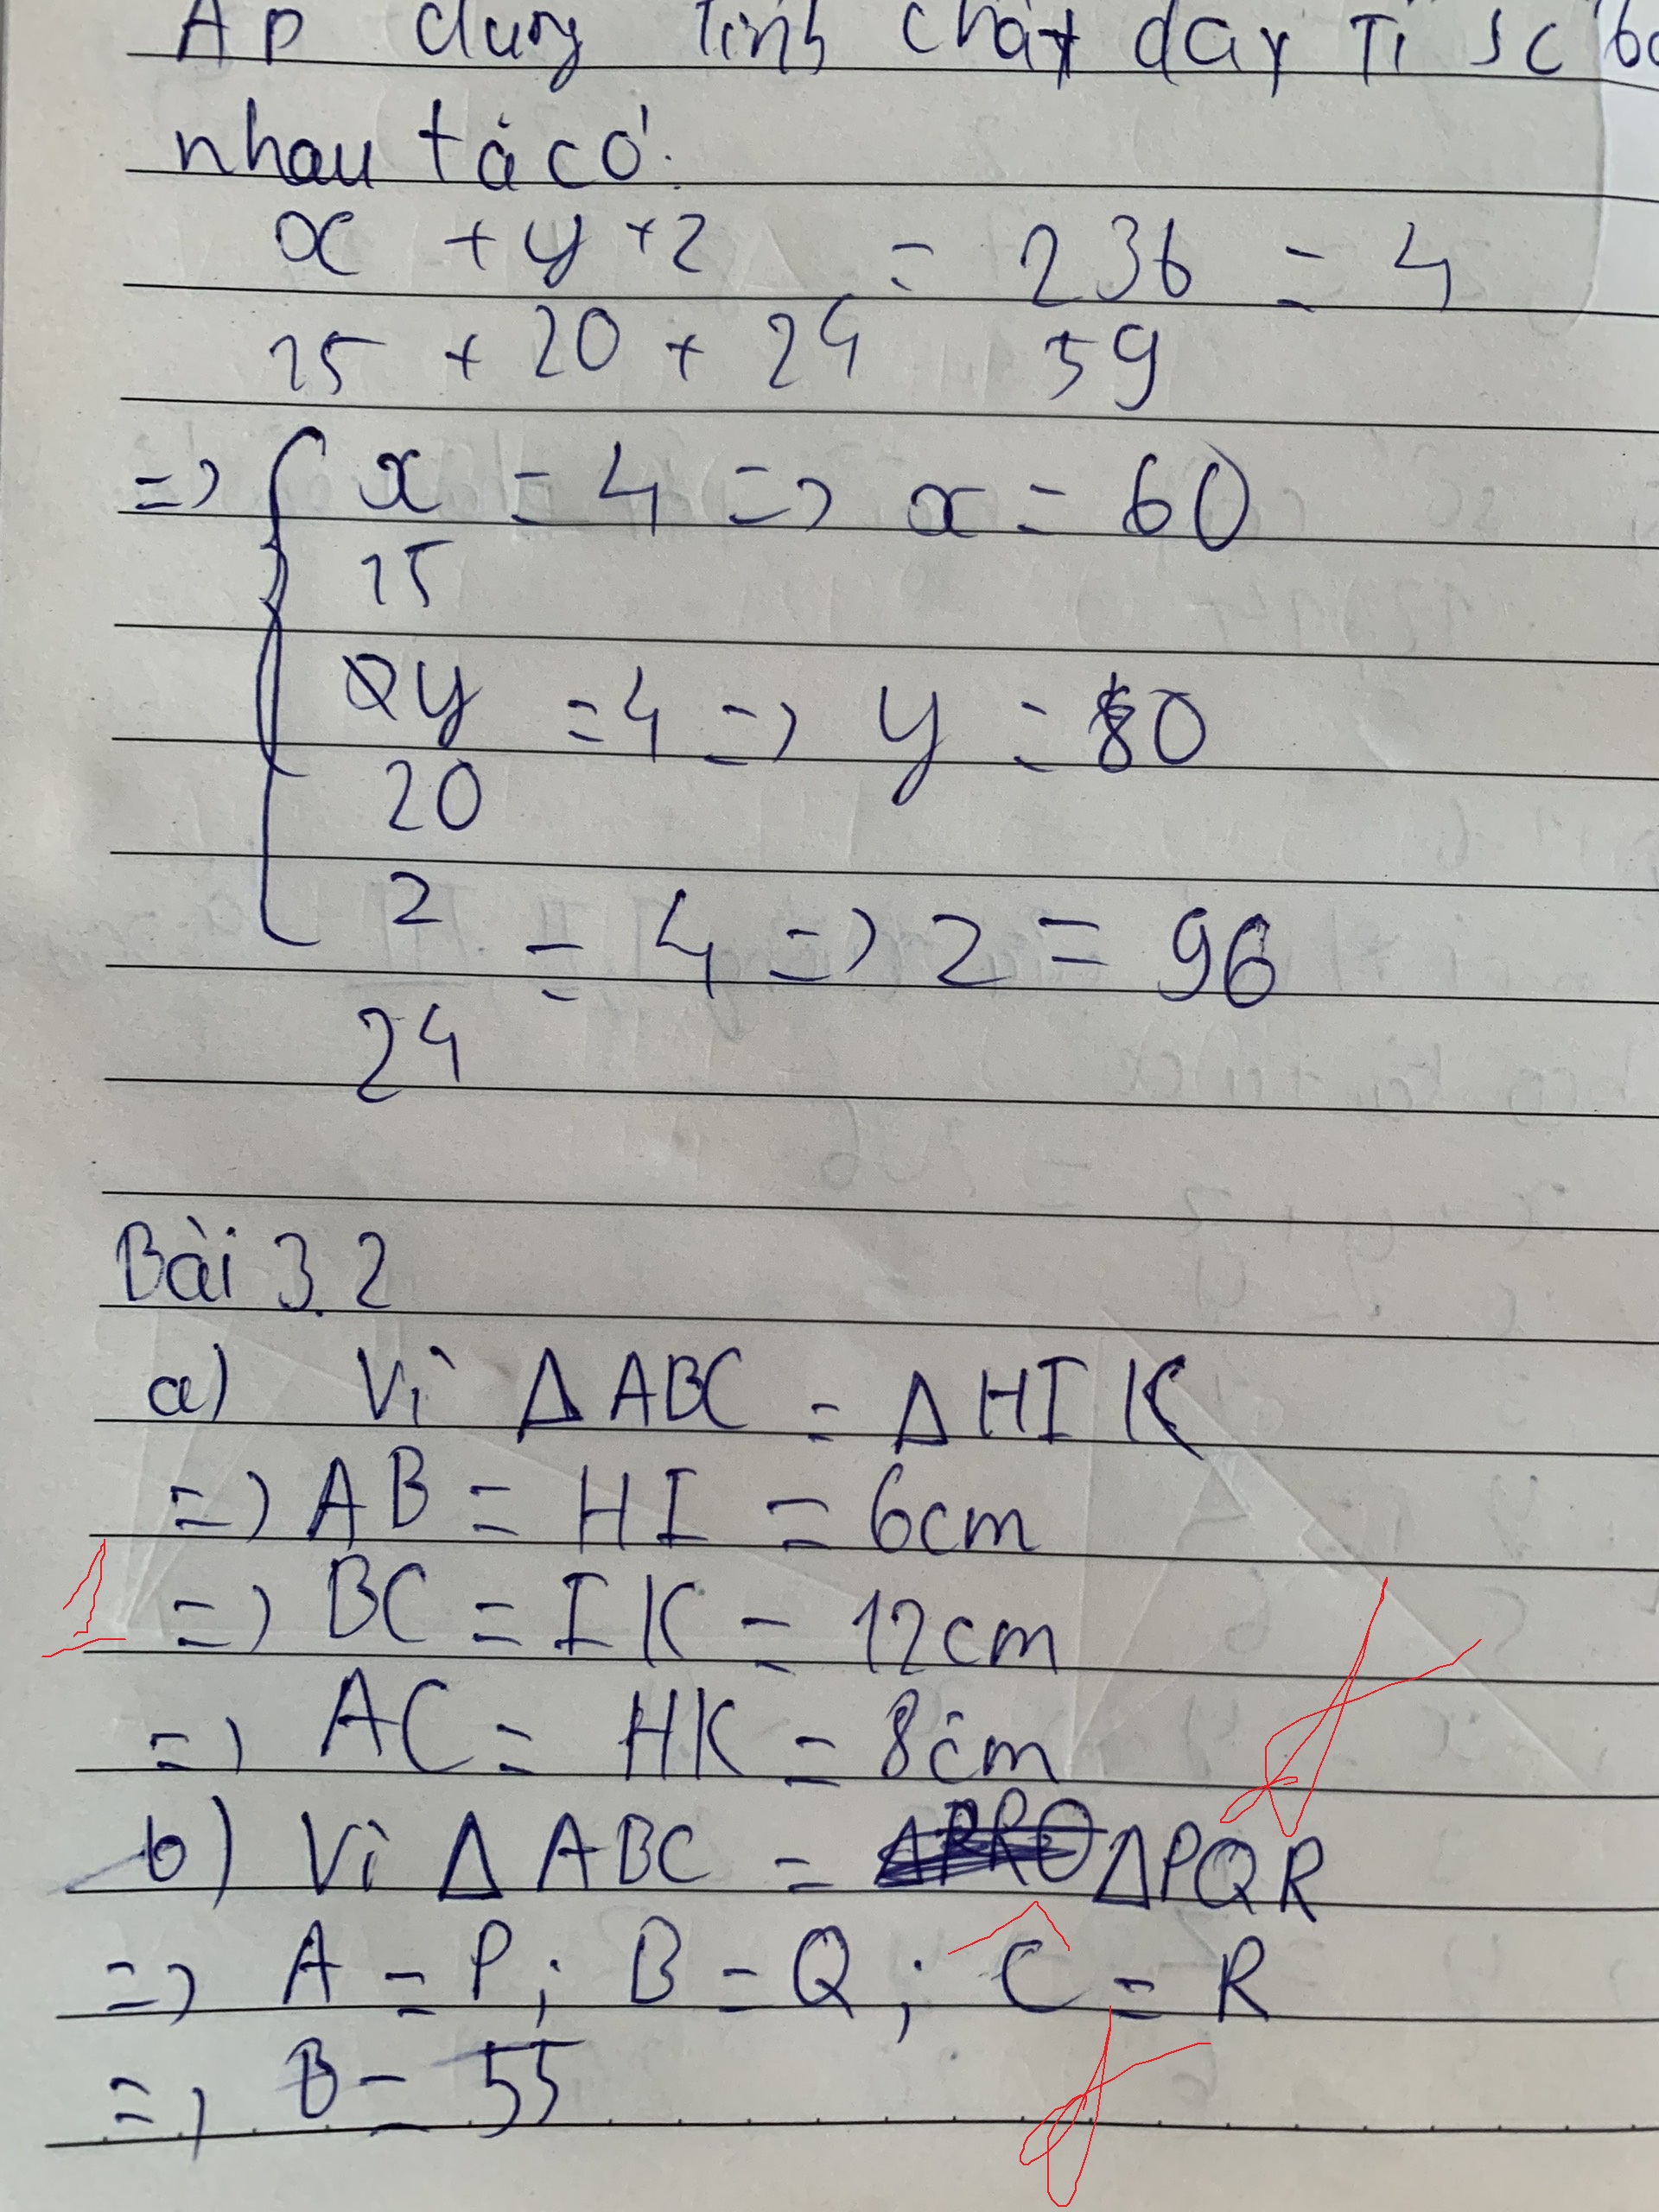 Áp dụng tính chất dãy tỉ số
nhau ta có:
x + y + z = 236 = 4
15 + 20 + 24 59
=> { x = 4 => x = 60
15
y = 4 => y = 80
20
z = 4 => z = 96
24
Bài 3.2
a) Vì Δ ABC = Δ HIK
=> AB = HI = 6cm
=> BC = IK = 12cm
=> AC = HK = 8cm
b) Vì Δ ABC = ΔPQR
=> A = P; B = Q; C = R
=> B = 55